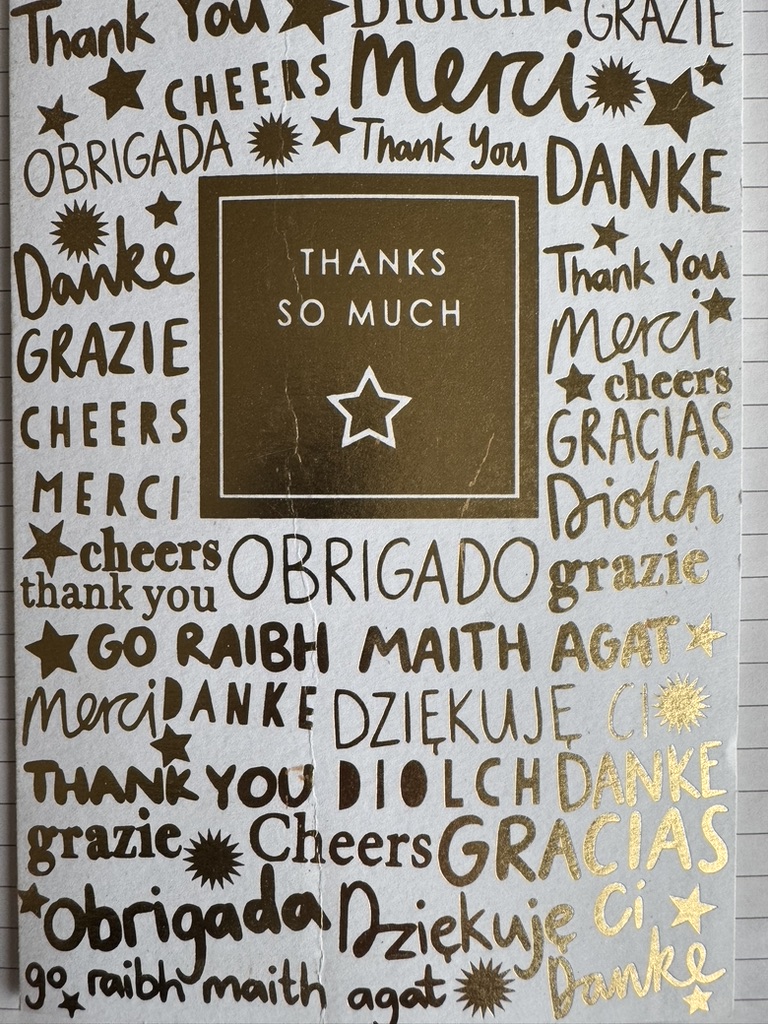 Thank You Diolch GRAZIE
CHEERS Merci
OBRIGADA Thank You DANKE
Danke THANKS Thank You
GRAZIE SO MUCH Merci
cheers
CHEERS GRACIAS
MERCI Diolch
cheers OBRIGADO grazie
thank you
GO RAIBH MAITH AGAT
Merci DANKE DZIĘKUJĘ CI
THANK YOU DIOLCH DANKE
grazie Cheers GRACIAS
Obrigada Dziękuję Ci
go raibh maith agat Danke